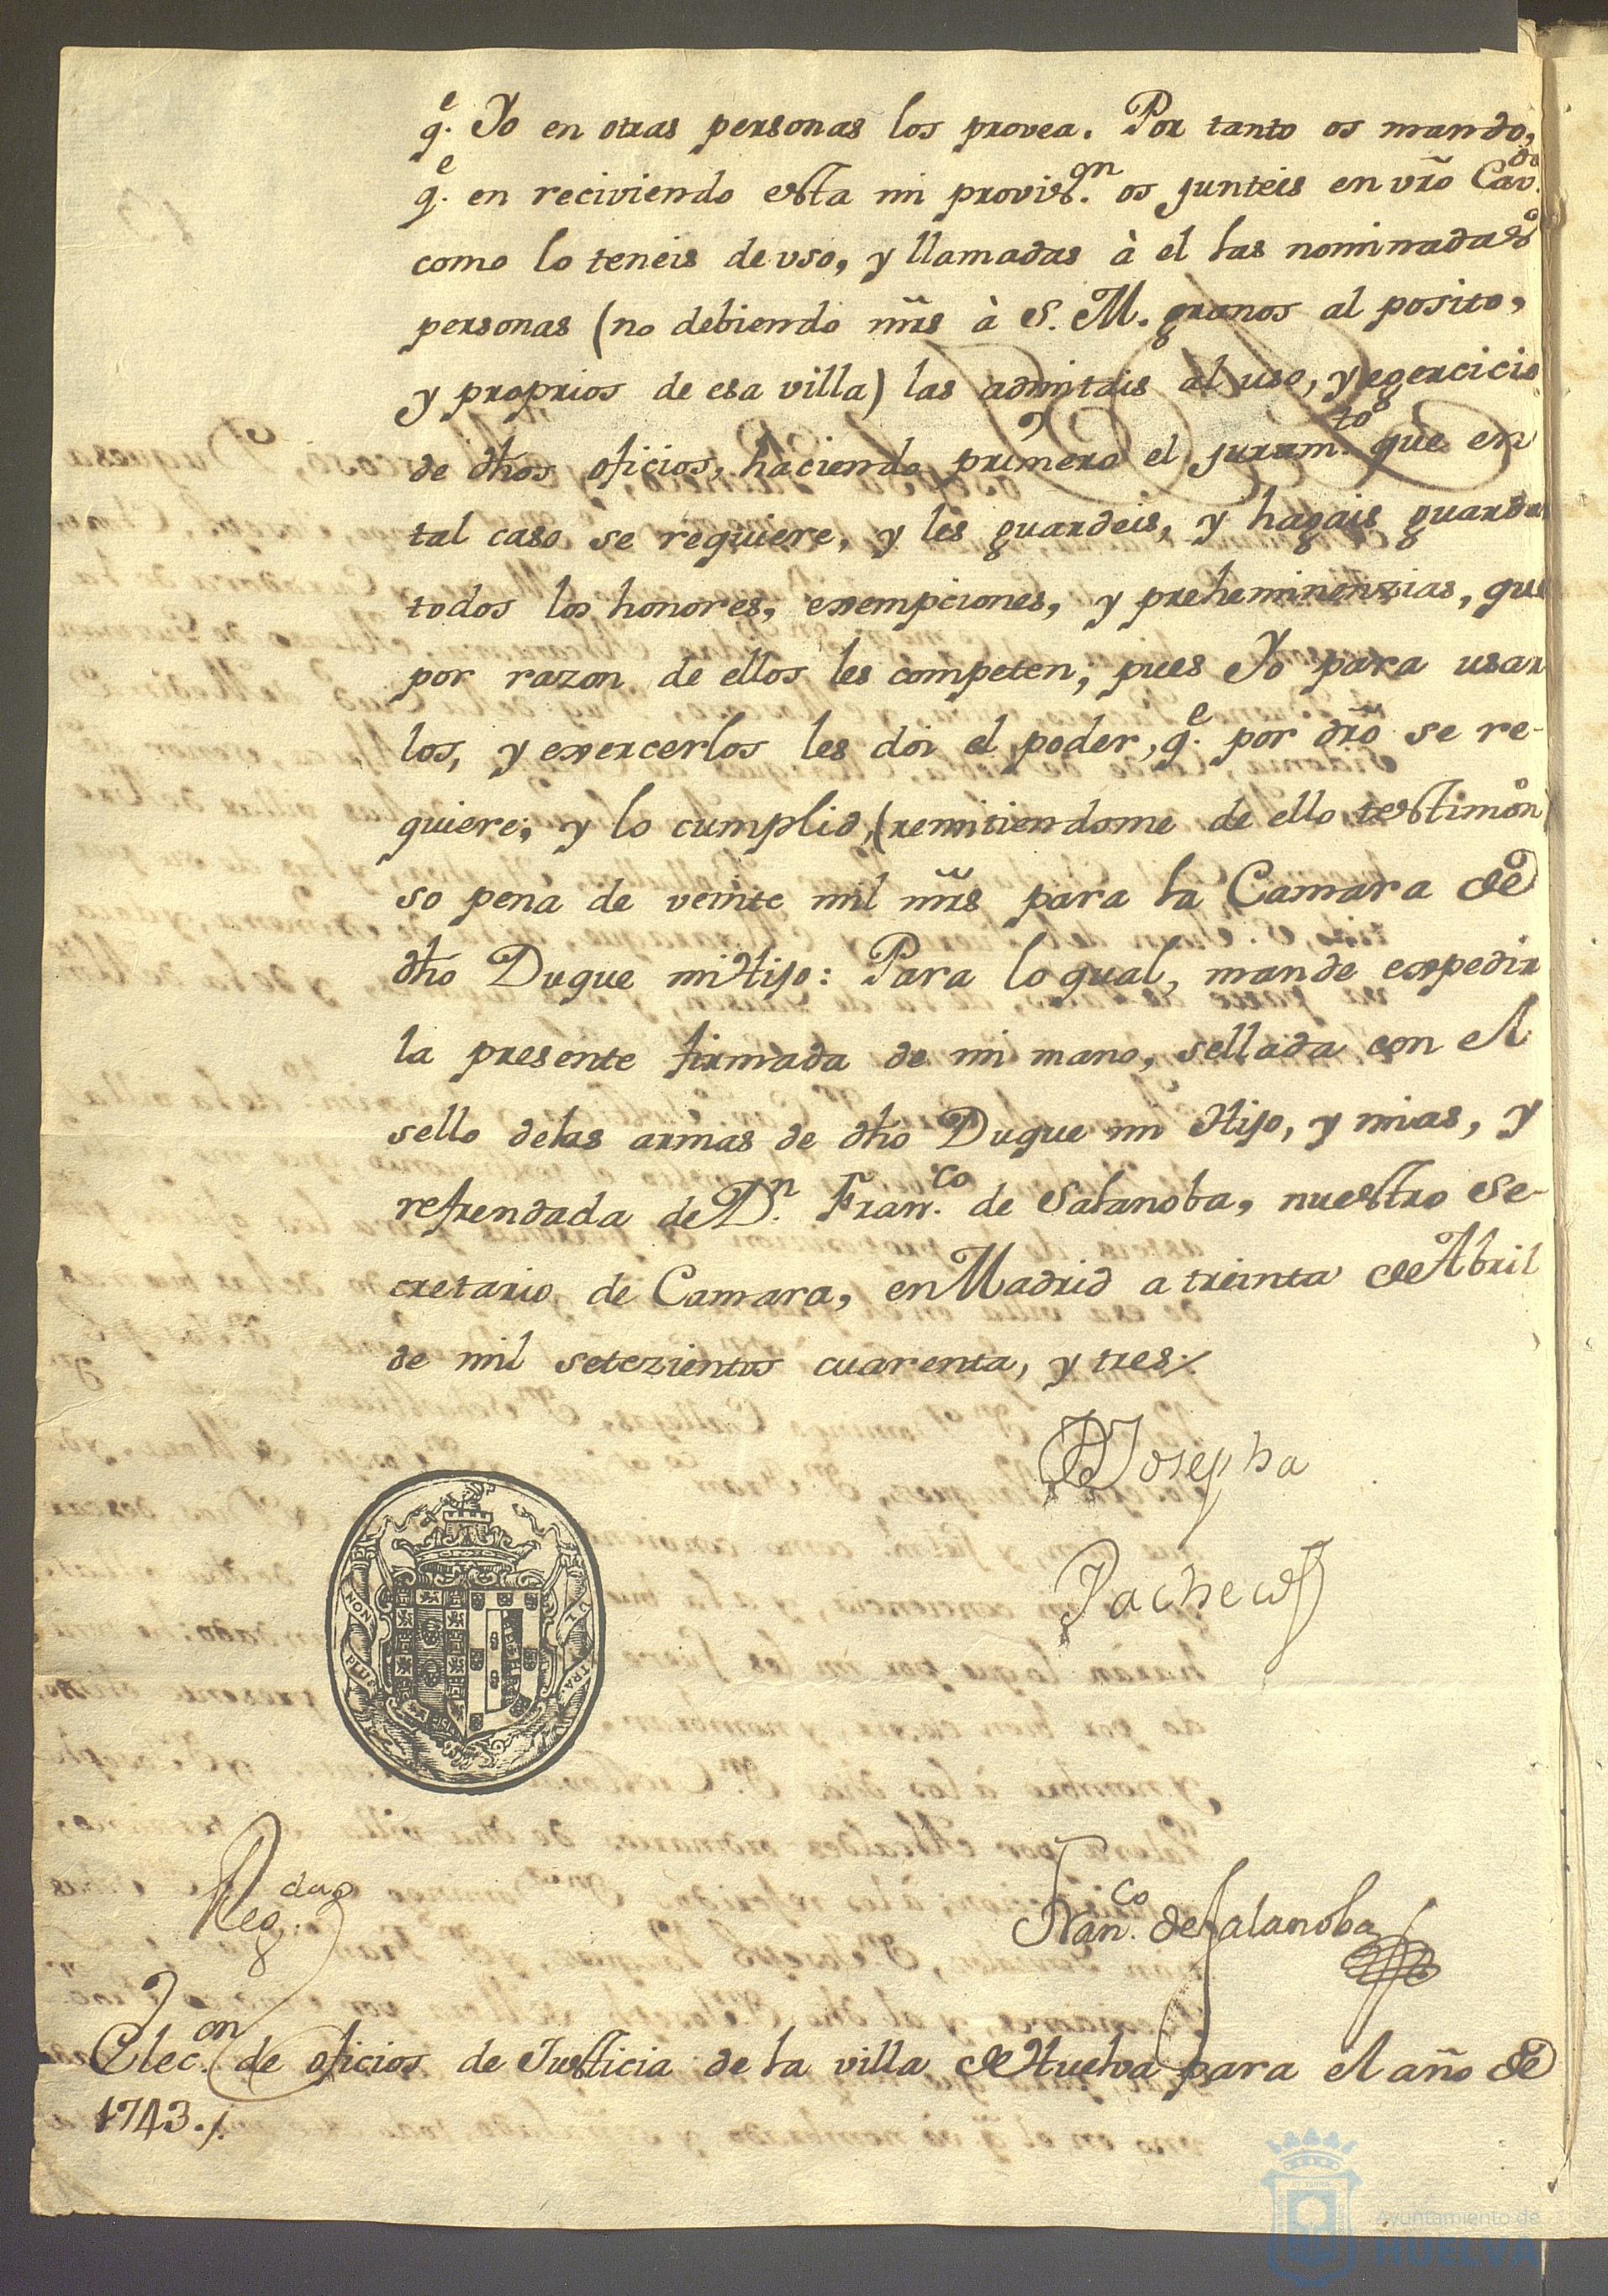 q.e Yo en otras personas los provea. Por tanto os mando,
q.e en reciviendo esta mi provis.on os junteis en vrõ Cav.do
como lo teneis de vso, y llamadas à el las nominadas
personas (no debiendo mrs à S. M. granos al posito,
y proprios de esa villa) las admitais al uso, y egercicio
de dhos oficios, haciendo primero el juram.to que en
tal caso se requiere, y les guardeis, y hagais guardar
todos los honores, exempciones, y preheminenzias, que
por razon de ellos les competen; pues Yo para usar
los, y exercerlos les doi el poder, q.e por drõ se re-
quiere; y lo cumplid, (remitiendome de ello testimon.o)
so pena de veinte mil mrs para la Camara de
dho Duque mi Hijo: Para lo qual, mande expedir
la presente firmada de mi mano, sellada con el
sello delas armas de dho Duque mi Hijo, y mias, y
refrendada de D.n Fran.co de Salanoba, nuestro Se-
cretario de Camara, en Madrid a treinta de Abril
de mil setezientos cuarenta, y tres./.
Josepha
Pacheco
NON
PLUS
VL
TRA.
Reg.da
Fran.co de Salanoba
Elec.on de oficios de Justicia de la villa de Huelva para el año de
1743./.
Ayuntamiento de
HUELVA